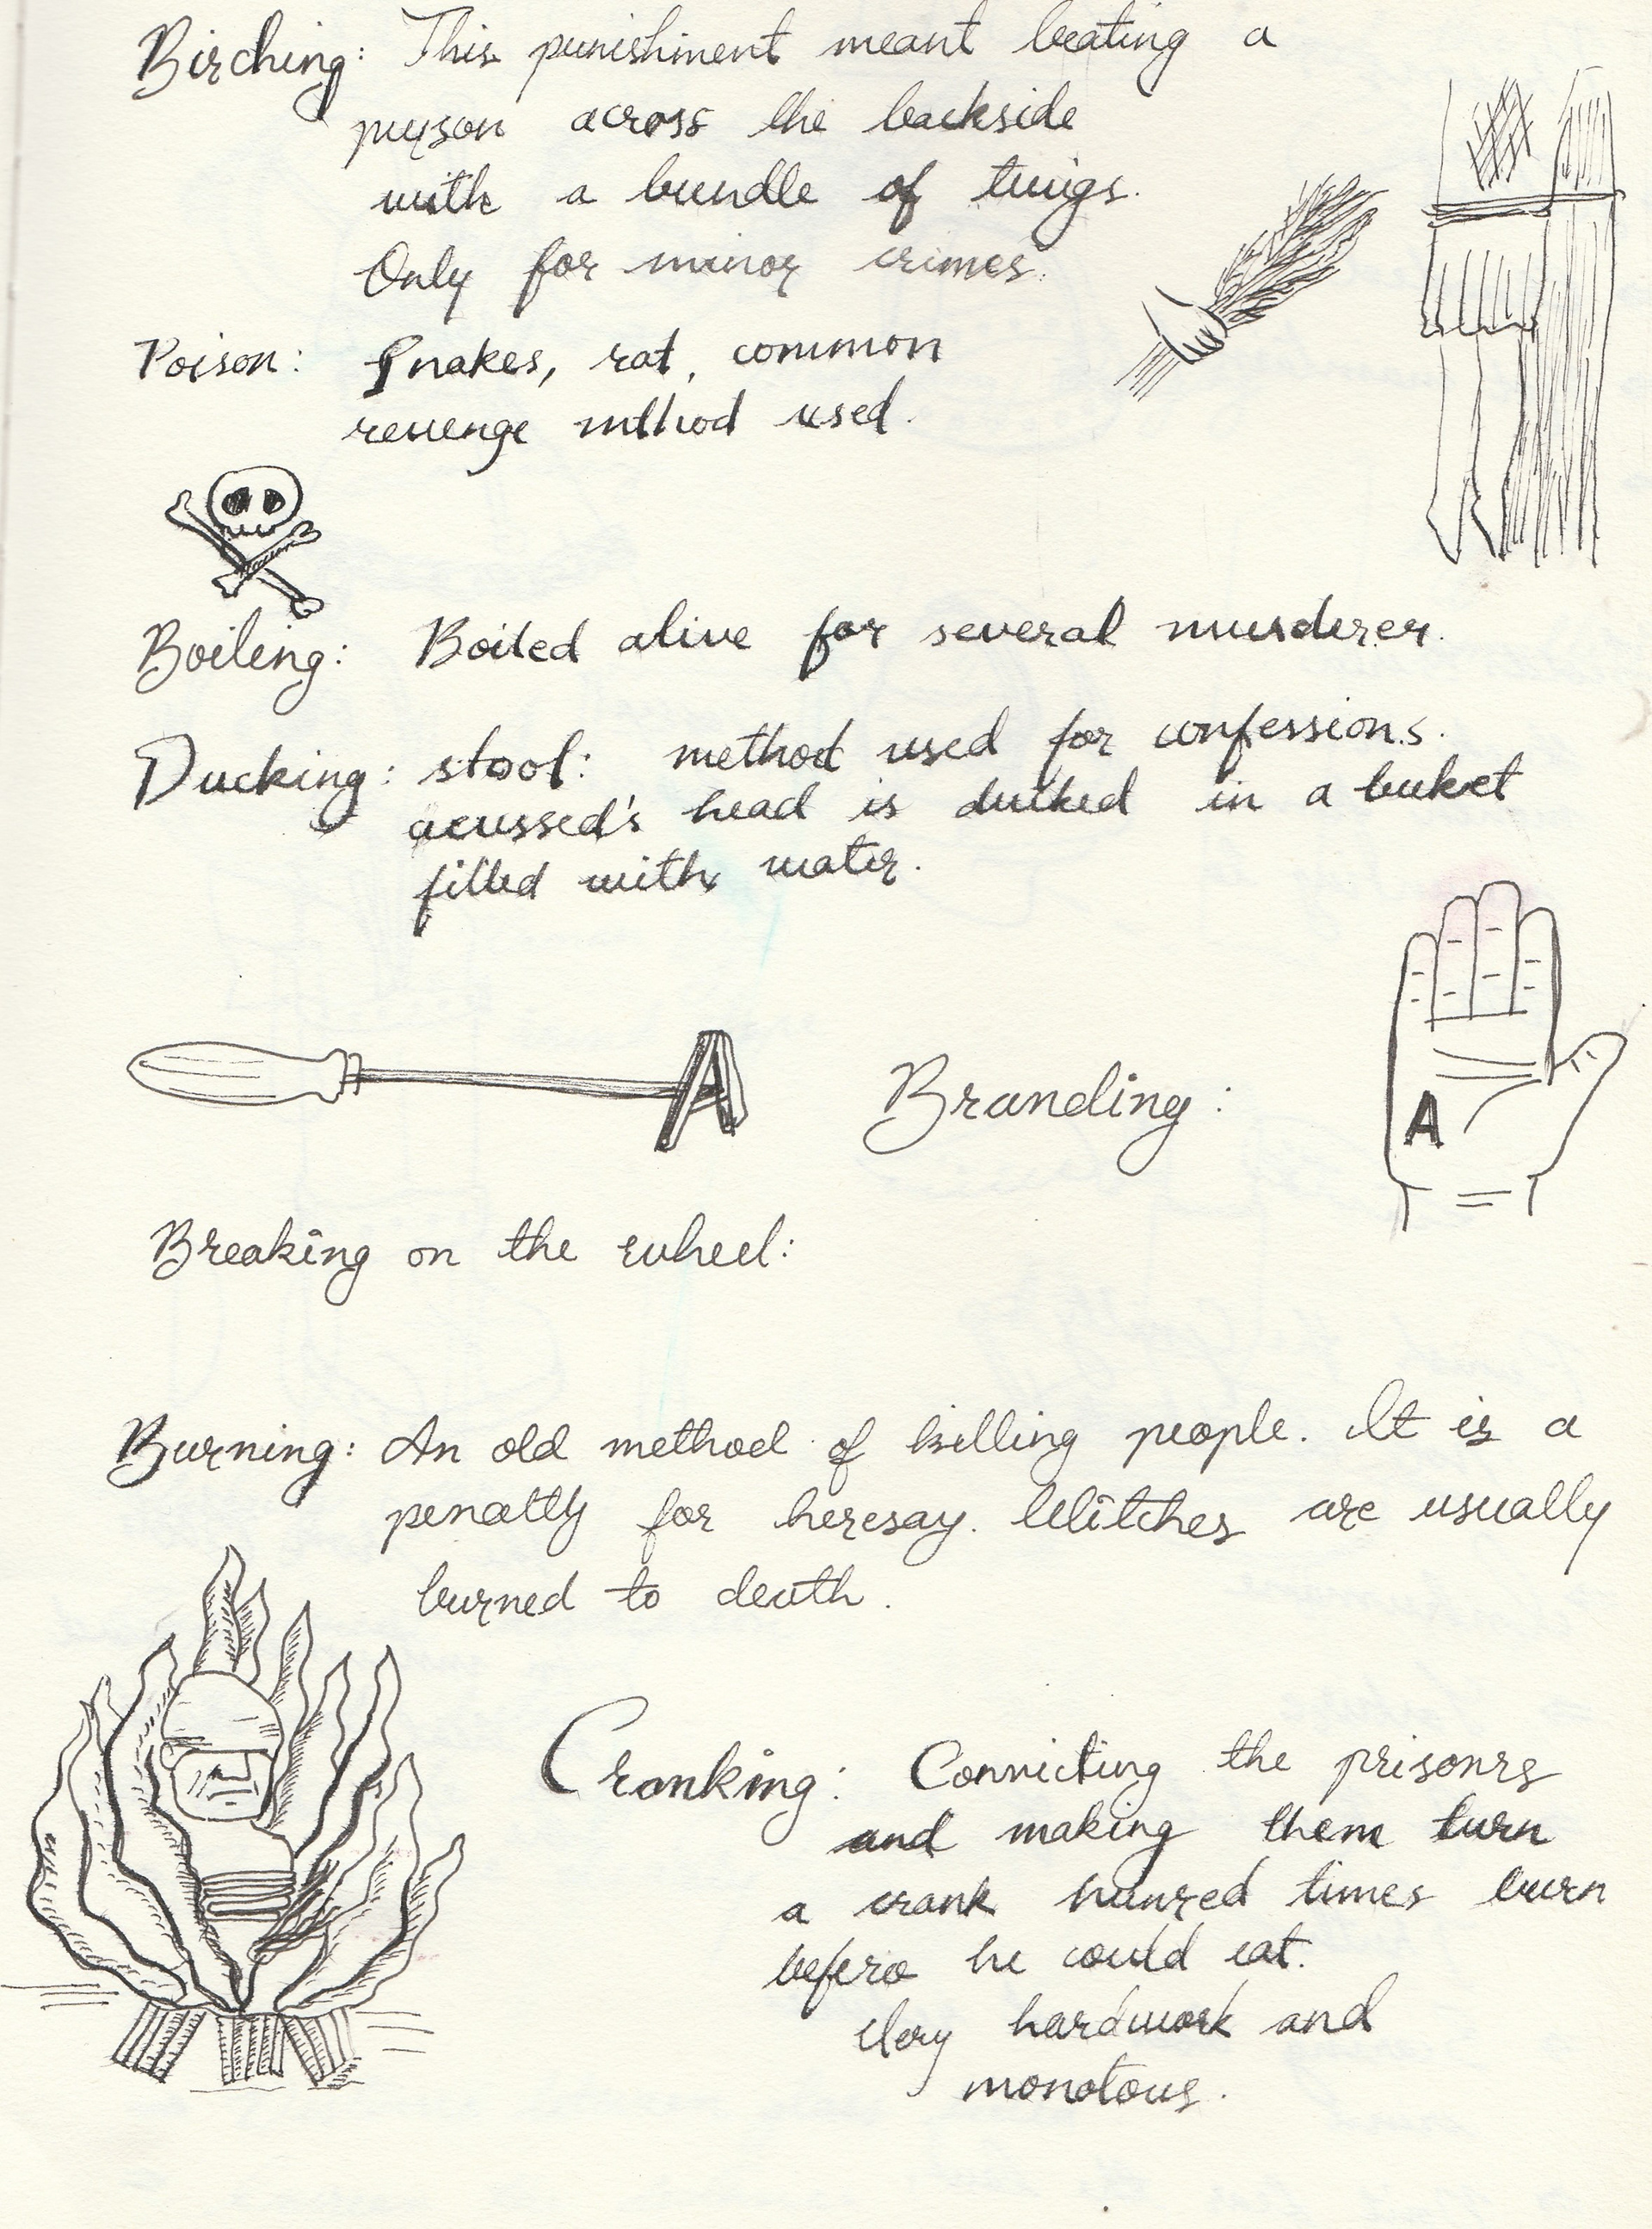 Birching: This punishment meant beating a
person across the backside
with a bundle of twigs.
Only for minor crimes.
Poison: Snakes, rat, common
revenge mthod used.
Boiling: Boiled alive for several murderer.
Ducking: stool: method used for confessions.
acussed's head is ducked in a buket
filled with water.
A
Branding:
A
Breaking on the wheel:
Burning: An old method of killing people. It is a
penalty for heresay. Witches are usually
burned to death.
Cranking: Convicting the prisonrs
and making them turn
a crank hunred times
before he could eat.
Very hardwork and
monotous.